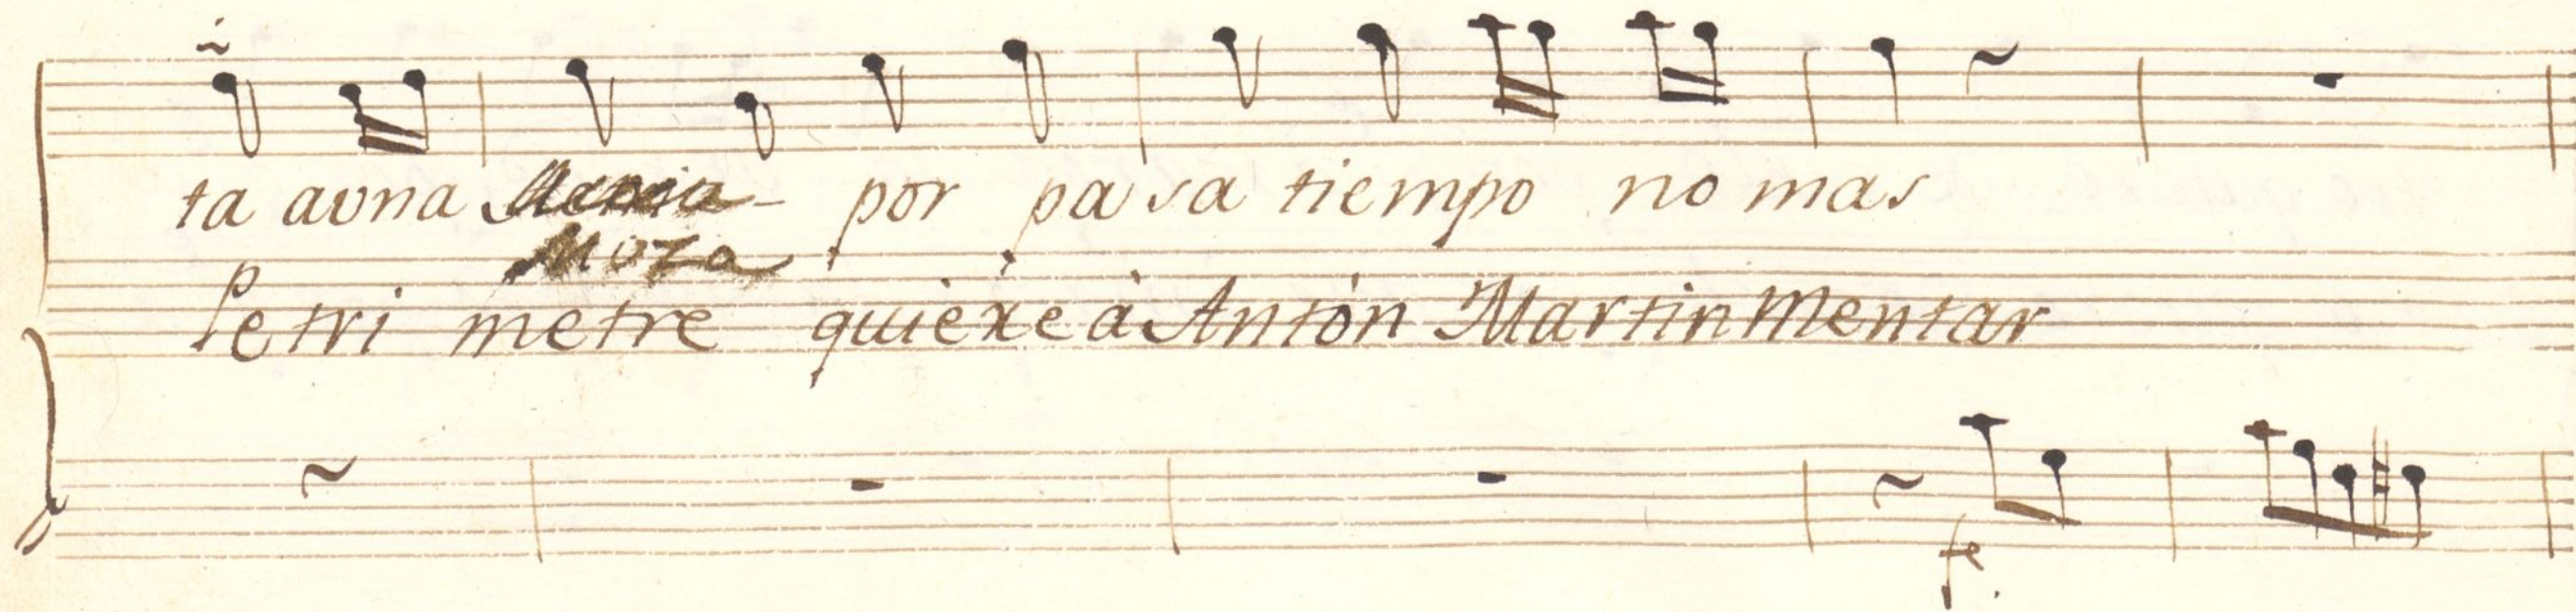 ta auna - por pasa tiempo no mas
Moza
Petri metre quiere à Antòn Martin Mentar
fe.